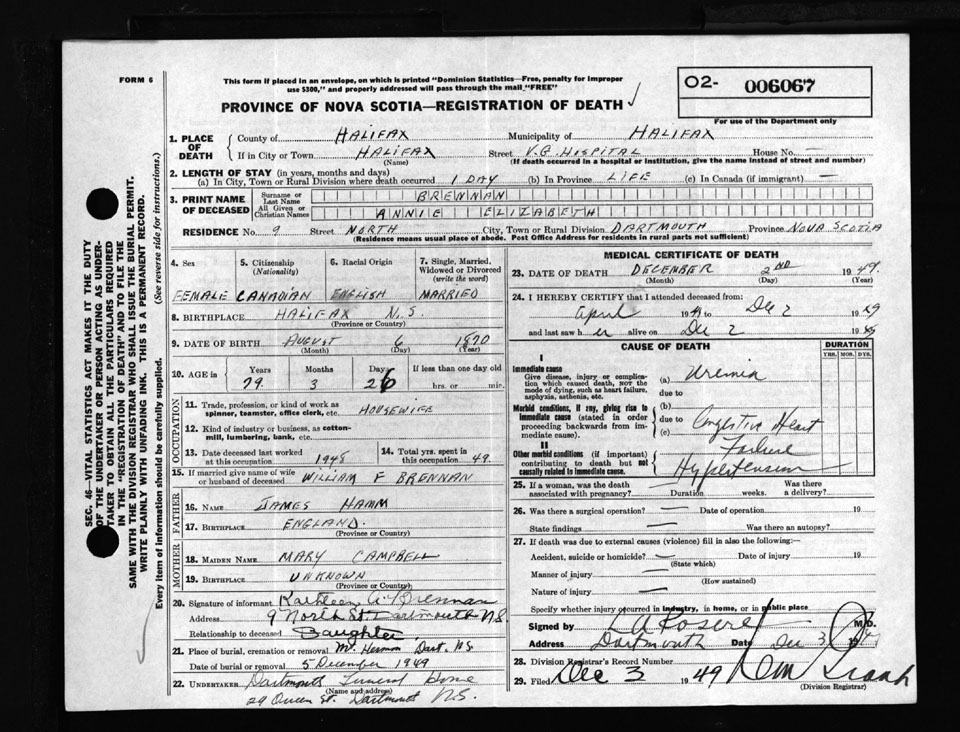 FORM 6
This form if placed in an envelope, on which is printed "Dominion Statistics—Free, penalty for improper
use $300," and properly addressed will pass through the mail "FREE"
O2- 006067
PROVINCE OF NOVA SCOTIA—REGISTRATION OF DEATH ✓
For use of the Department only
1. PLACE OF DEATH County of HALIFAX Municipality of HALIFAX
If in City or Town HALIFAX (Name) Street V.G. HOSPITAL House No. —
(If death occurred in a hospital or institution, give the name instead of street and number)
2. LENGTH OF STAY (in years, months and days)
(a) In City, Town or Rural Division where death occurred 1 DAY (b) In Province LIFE (c) In Canada (if immigrant) —
3. PRINT NAME OF DECEASED Surname or Last Name BRENNAN
All Given or Christian Names ANNIE ELIZABETH
RESIDENCE No. 9 Street NORTH City, Town or Rural Division DARTMOUTH Province NOVA SCOTIA
(Residence means usual place of abode. Post Office Address for residents in rural parts not sufficient)
4. Sex FEMALE
5. Citizenship (Nationality) CANADIAN
6. Racial Origin ENGLISH
7. Single, Married, Widowed or Divorced (write the word) MARRIED
8. BIRTHPLACE HALIFAX N.S.
(Province or Country)
9. DATE OF BIRTH AUGUST 6 1870
(Month) (Day) (Year)
10. AGE in Years 79 Months 3 Days 26 If less than one day old hrs. or min.
OCCUPATION
11. Trade, profession, or kind of work as spinner, teamster, office clerk, etc. HOUSEWIFE
12. Kind of industry or business, as cotton-mill, lumbering, bank, etc.
13. Date deceased last worked at this occupation 1948 14. Total yrs. spent in this occupation 49.
15. If married give name of wife or husband of deceased WILLIAM F BRENNAN
FATHER
16. Name JAMES HAMM
17. Birthplace ENGLAND.
(Province or Country)
MOTHER
18. Maiden Name MARY CAMPBELL
19. Birthplace UNKNOWN
(Province or Country)
20. Signature of informant Kathleen A. Brennan
Address 9 North St. Dartmouth N.S.
Relationship to deceased Daughter
21. Place of burial, cremation or removal Mt. Hermon Dart. N.S.
Date of burial or removal 5 December 1949
22. Undertaker Dartmouth Funeral Home
(Name and address)
29 Queen St. Dartmouth N.S.
MEDICAL CERTIFICATE OF DEATH
23. DATE OF DEATH DECEMBER 2ND 1949.
(Month) (Day) (Year)
24. I HEREBY CERTIFY that I attended deceased from:
April 1949 to Dec 2 1949
and last saw her alive on Dec 2 1949
CAUSE OF DEATH DURATION
YRS. MOS. DYS.
I
Immediate cause
Give disease, injury or complication which caused death, NOT the mode of dying, such as heart failure, asphyxia, asthenia, etc.
(a) Uremia
due to
Morbid conditions, if any, giving rise to immediate cause (stated in order proceeding backwards from immediate cause).
(b)
due to
(c) Congestive Heart
Failure
II
Other morbid conditions (if important) contributing to death but not causally related to immediate cause.
Hypertension
25. If a woman, was the death associated with pregnancy? — Duration weeks. Was there a delivery?
26. Was there a surgical operation? — Date of operation 19
State findings — Was there an autopsy?
27. If death was due to external causes (violence) fill in also the following:—
Accident, suicide or homicide? — Date of injury 19
(State which)
Manner of injury —
(How sustained)
Nature of injury —
Specify whether injury occurred in industry, in home, or in public place
Signed by M.D.
Address Dartmouth Date Dec 3
28. Division Registrar's Record Number
29. Filed Dec 3 1949
(Division Registrar)
SEC. 46—VITAL STATISTICS ACT MAKES IT THE DUTY
OF THE UNDERTAKER OR PERSON ACTING AS UNDER-
TAKER TO OBTAIN ALL THE PARTICULARS REQUIRED
IN THE "REGISTRATION OF DEATH" AND TO FILE THE
SAME WITH THE DIVISION REGISTRAR WHO SHALL ISSUE THE BURIAL PERMIT.
WRITE PLAINLY WITH UNFADING INK. THIS IS A PERMANENT RECORD.
Every item of information should be carefully supplied. (See reverse side for instructions.)